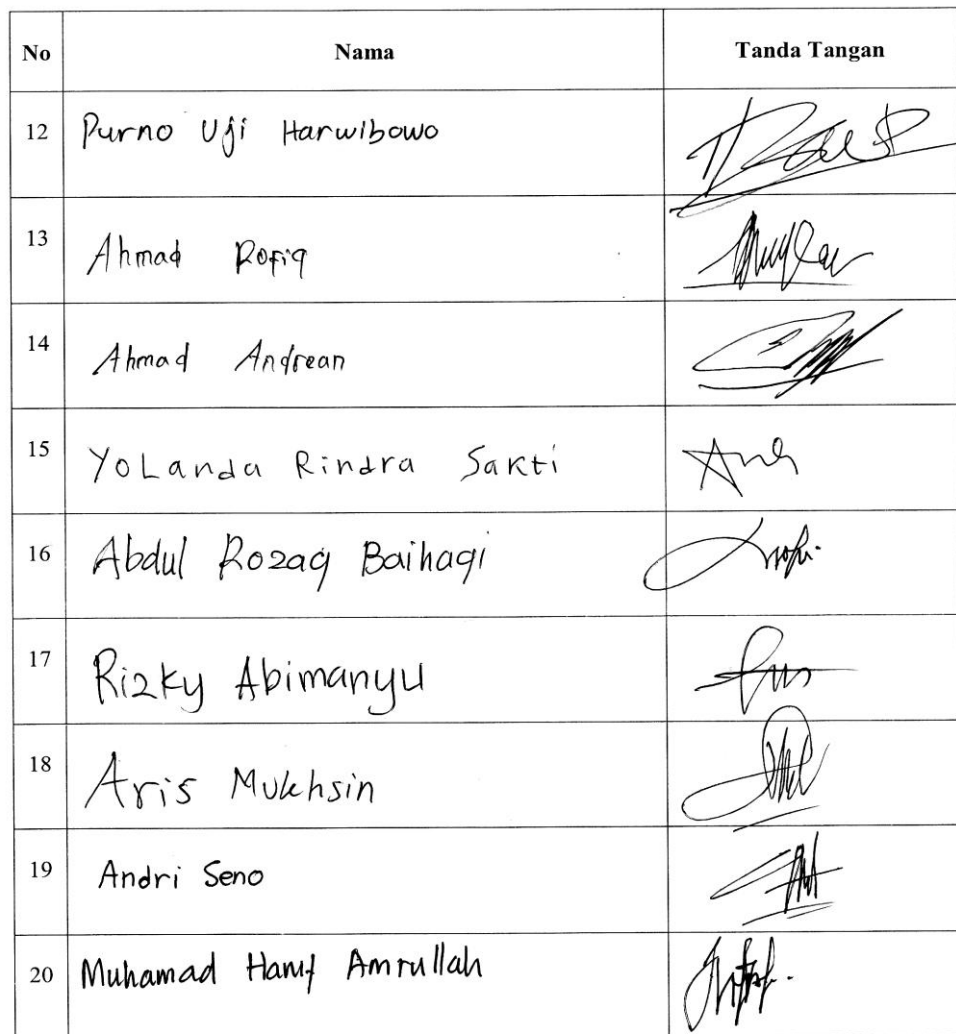 No Nama Tanda Tangan
12 Purno Uji Harwibowo
13 Ahmad Rofiq
14 Ahmad Andrean
15 YoLanda Rindra Sakti
16 Abdul Rozaq Baihaqi
17 Rizky Abimanyu
18 Aris Mukhsin
19 Andri Seno
20 Muhamad Hanif Amrullah